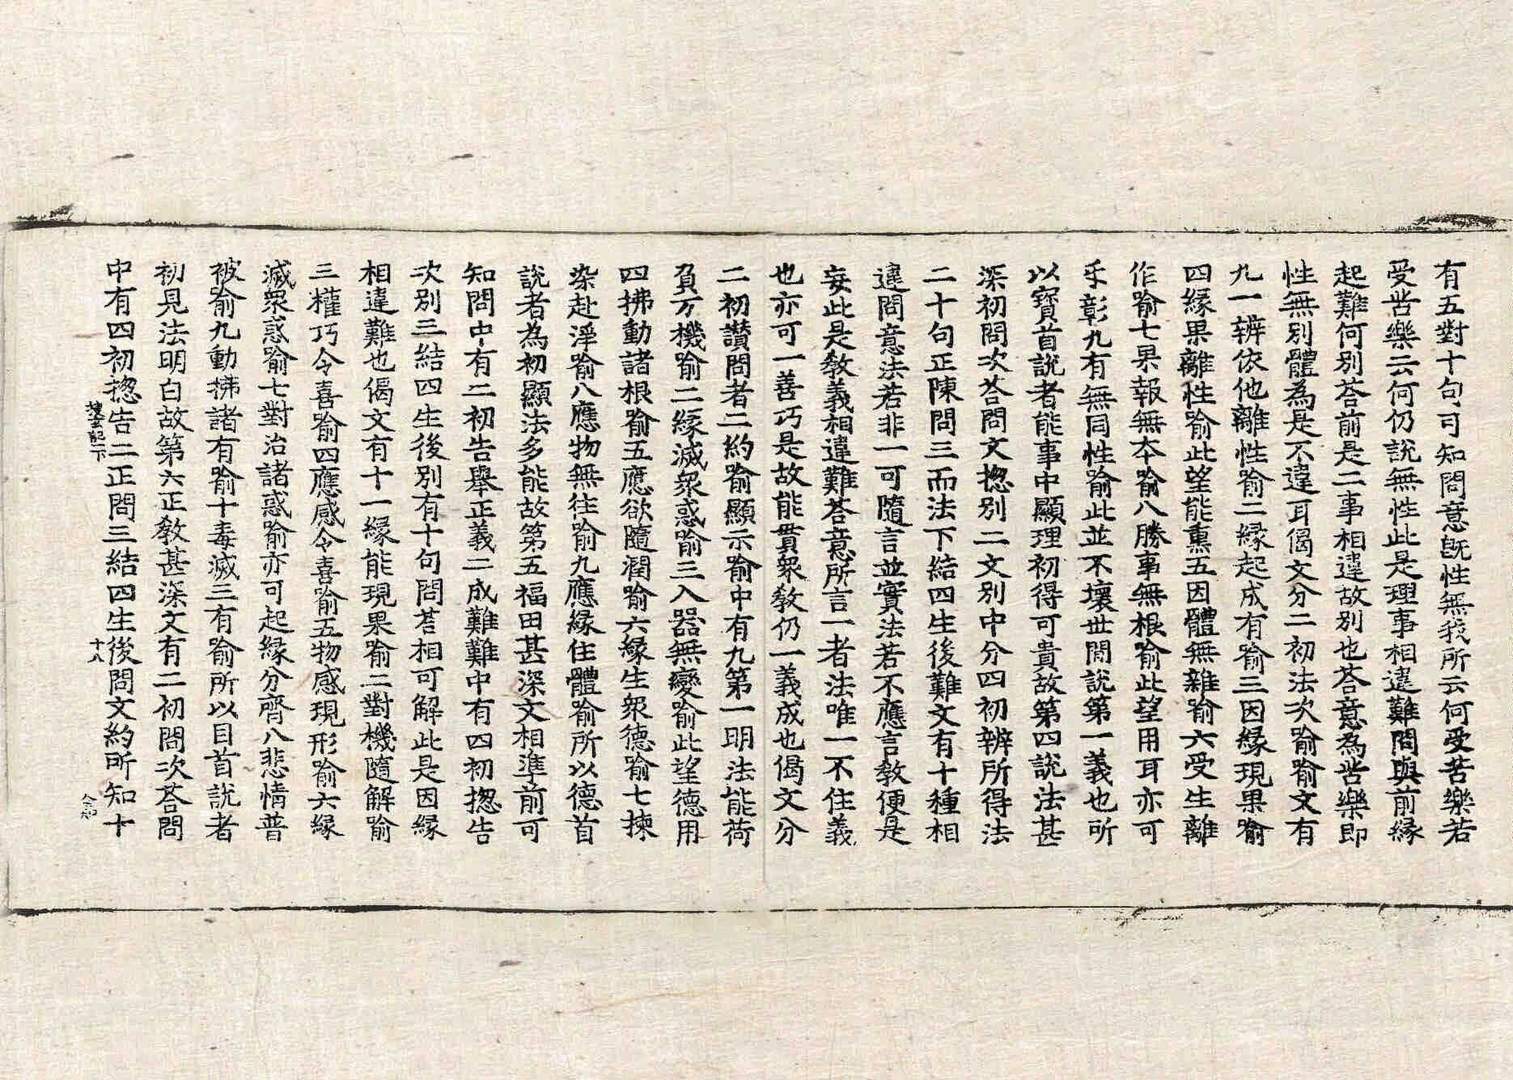 有五對十句可知問意既性無我所云何受苦樂若
受苦樂云何仍說無性此是理事相違難問與前緣
起難何別荅前是二事相違故別也荅意為苦樂即
性無別體為是不違耳偈文分二初法次喻喻文有
九一辨依他離性喻二緣起成有喻三因緣現果喻
四緣果離性喻此望能熏五因體無雜喻六受生離
作喻七果報無本喻八勝事無根喻此望用耳亦可
乐彰九有無同性喻此並不壞世間說第一義也所
以寶首說者能事中顯理初得可貴故第四說法甚
深初問次荅問文揔別二文別中分四初辨所得法
二十句正陳問三而法下結四生後難文有十種相
違問意法若非一可隨言並實法若不應言教便是
妄此是教義相違難荅意所言一者法唯一不住義
也亦可一善巧是故能貫衆教仍一義成也偈文分
二初讃問者二約喻顯示喻中有九第一明法能荷
負万機喻二緣滅衆惑喻三入器無變喻此望德用
四拂動諸根喻五應欲隨潤喻六緣生衆德喻七揀
染赴淨喻八應物無往喻九應緣住體喻所以德首
說者為初顯法多能故第五福田甚深文相準前可
知問中有二初告舉正義二成難難中有四初揔告
次別三結四生後別有十句問荅相可解此是因緣
相違難也偈文有十一緣能現果喻二對機隨解喻
三權巧令喜喻四應感令喜喻五物感現形喻六緣
滅衆惑喻七對治諸惑喻亦可起緣分齊八悲情普
被喻九動拂諸有喻十毒滅三有喻所以目首說者
初見法明白故第六正教甚深文有二初問次荅問
中有四初揔告二正問三結四生後問文約所知十
十八